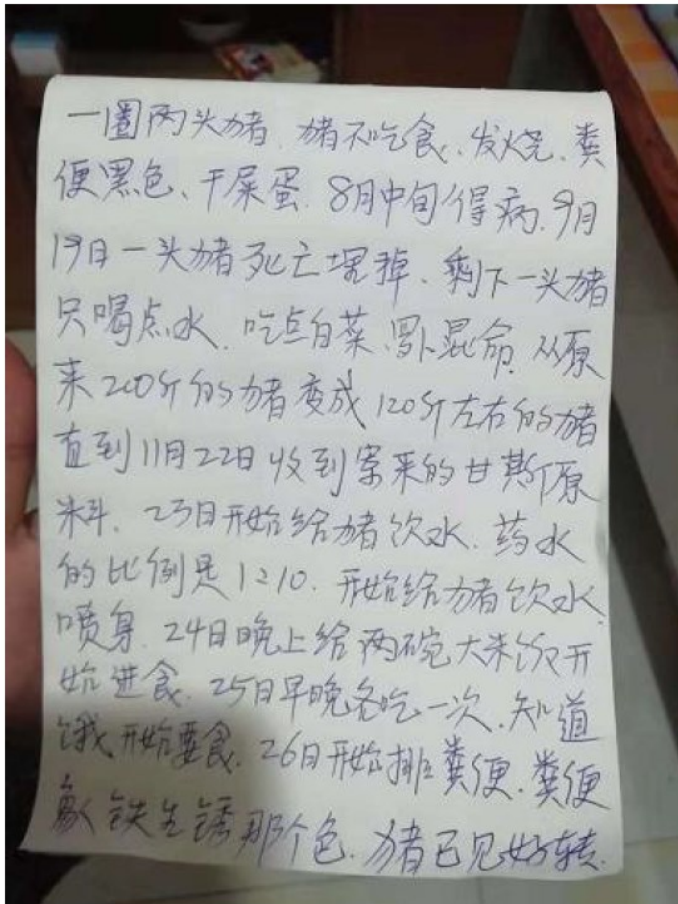 一圈两头猪、猪不吃食、发烧、粪
便黑色、干屎蛋、8月中旬得病、9月
19日一头猪死亡埋掉、剩下一头猪
只喝点水、吃点白菜、混命、从原
来200斤的猪变成120斤左右的猪
直到11月22日收到寄来的甘斯原
料、23日开始给猪饮水、药水
的比例是1:10、开始给猪饮水、
喷身、24日晚上给两碗大米饭开
始进食、25日早晚各吃一次、知道
饿、开始要食、26日开始排粪便、粪便
象铁生锈那个色、猪已见好转、